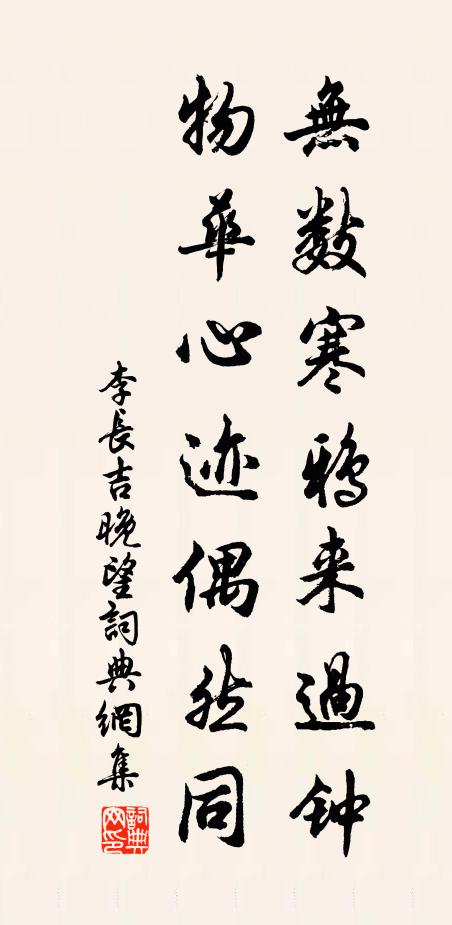 無數寒鴉来過钟
物華心迹偶然同
李長吉晚望詞典網集
詞典網印